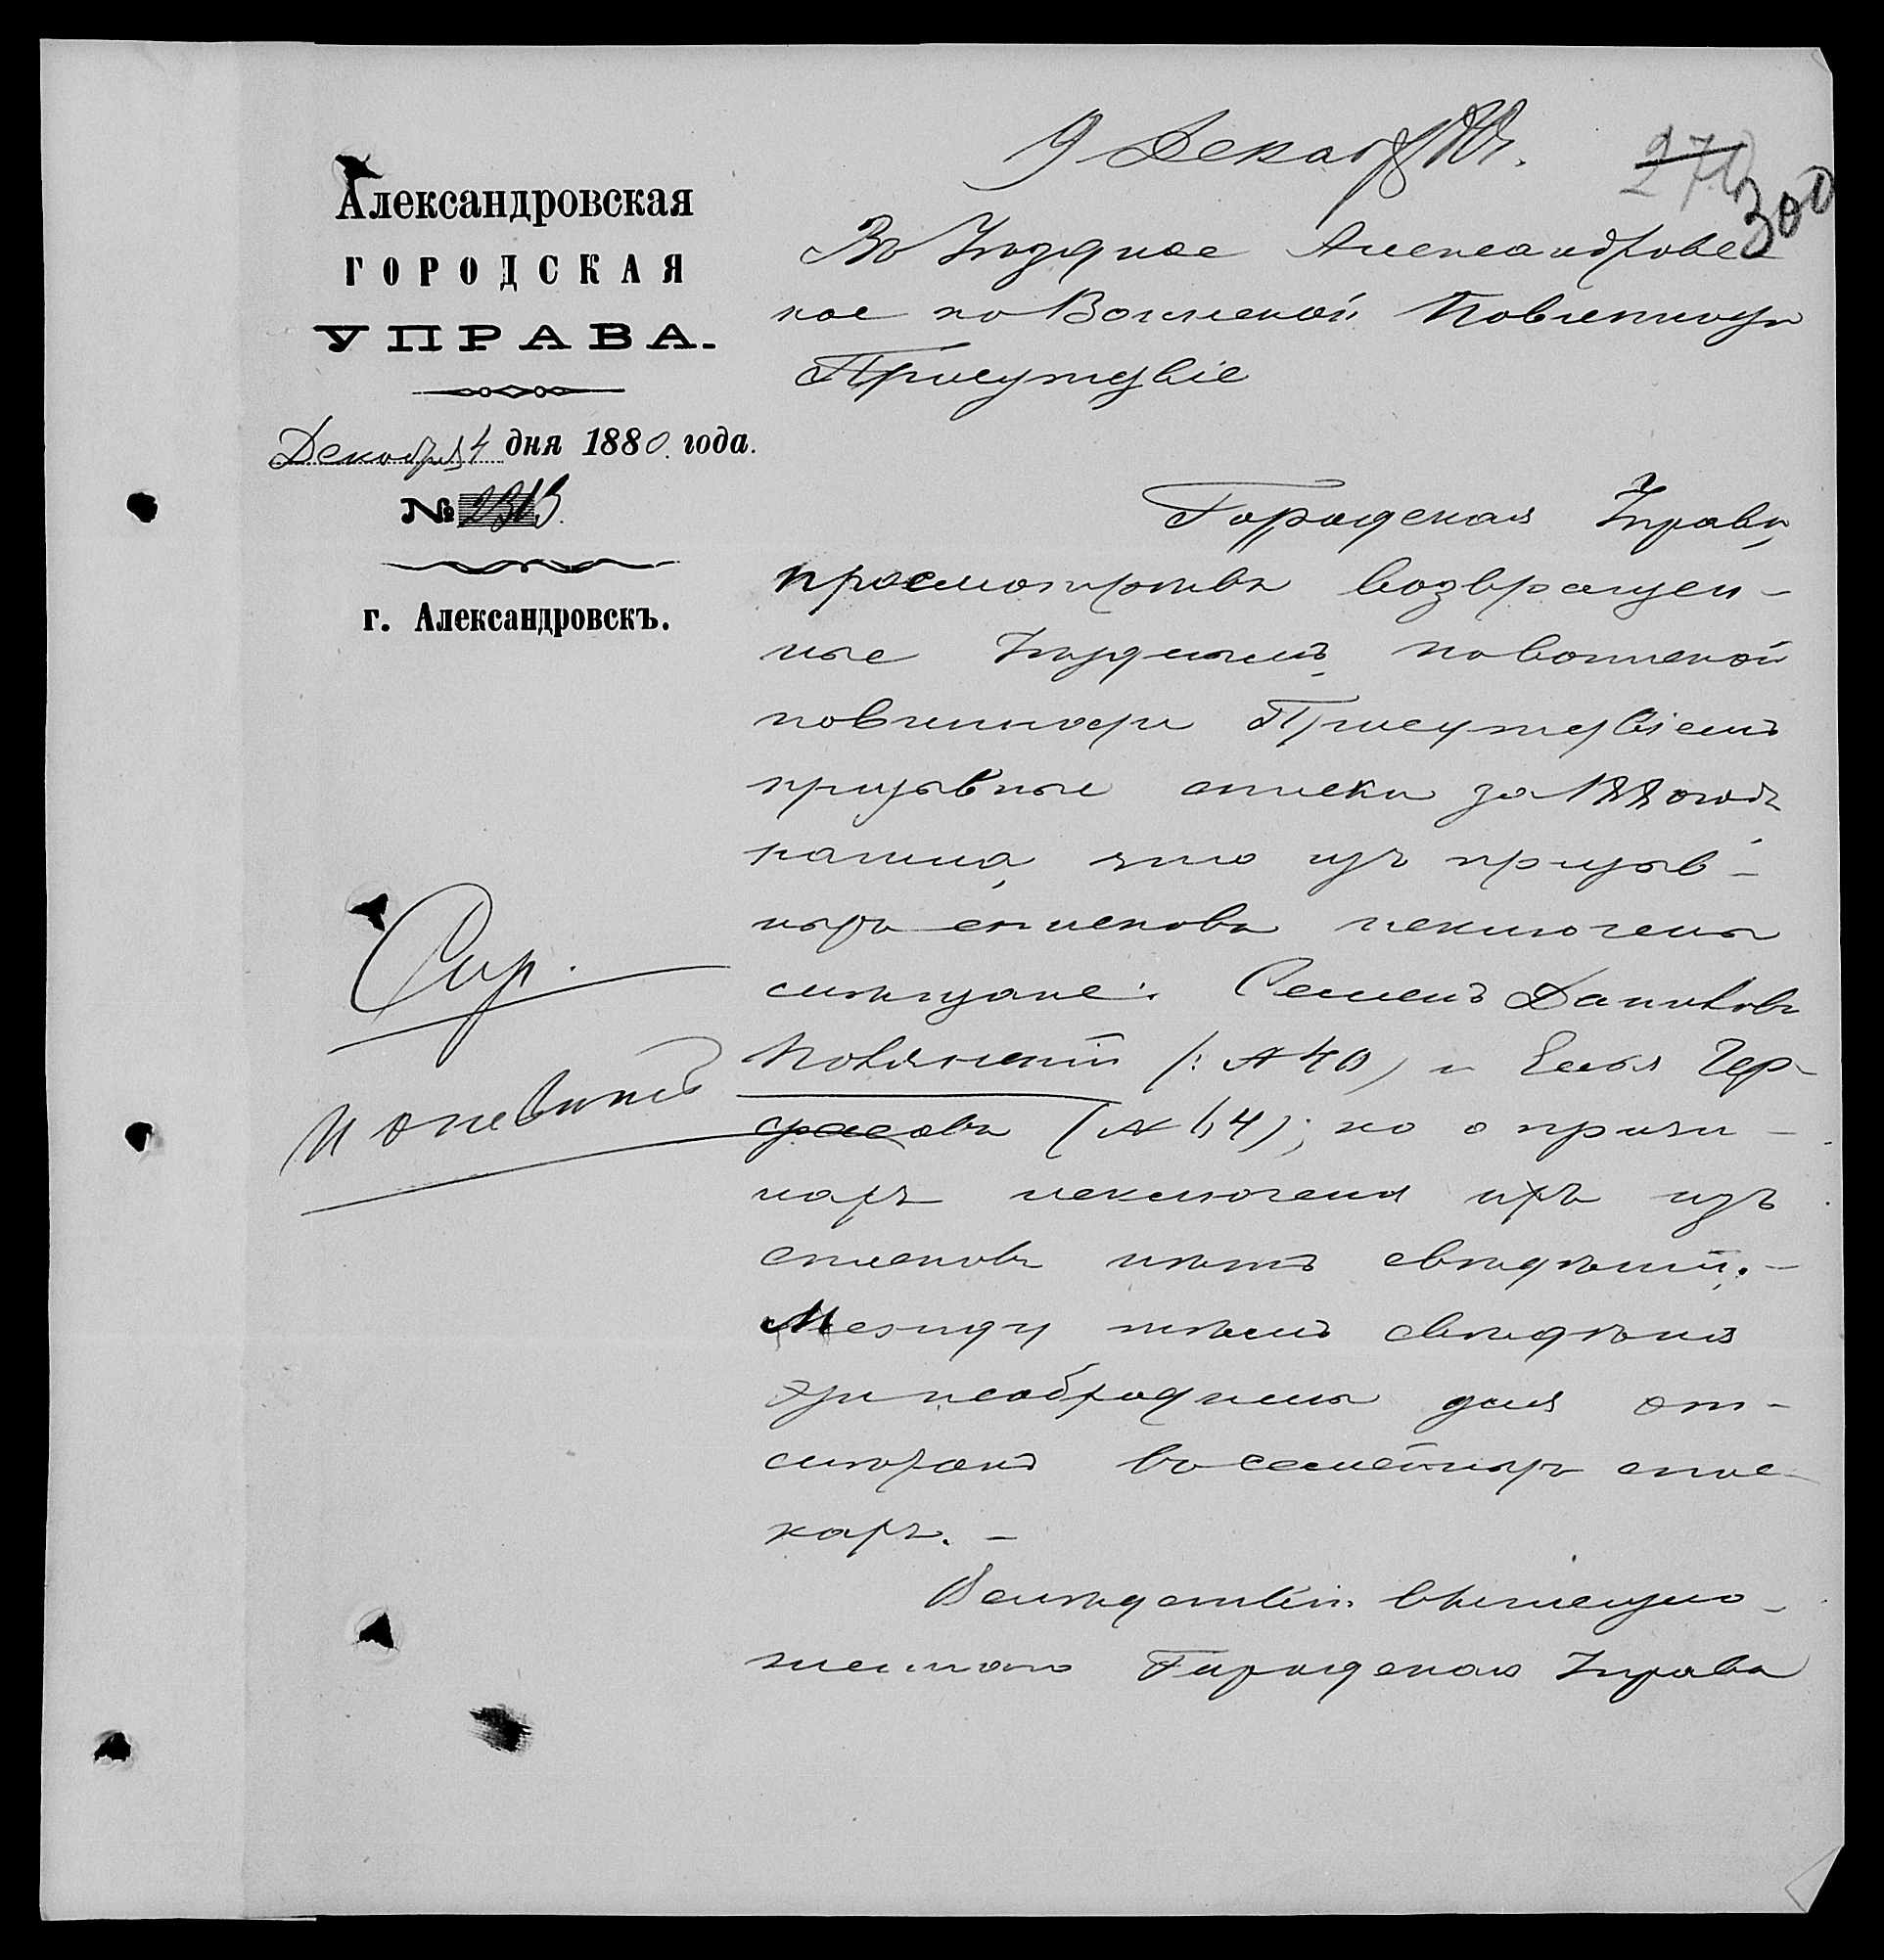 9 Декабр 80 г.
270
300
Александровская
ГОРОДСКАЯ
УПРАВА.
Декабря 4 дня 1880 года.
№ 2313.
г. Александровскъ.
Въ Уѣздное Александровс
кое по Воинской Повинности
Присутствіе
Городская Управа,
просмотрѣвъ возвращен-
ные Уѣзднымъ по воинской
повинности Присутствіемъ
призывные списки за 1880 годъ
нашла, что изъ призыв-
ныхъ списковъ исключены
слѣдующіе: Семенъ Даниловъ
(: № 40) и Гер-
(№ 64); но о причи-
нахъ исключенія ихъ изъ
списковъ нѣтъ свѣдѣній.-
Между тѣмъ свѣдѣнія
эти необходимы для от-
мѣтокъ въ семейныхъ спис-
кахъ.-
Вслѣдствіи вышеизло-
женнаго Городская Управа
Спр.